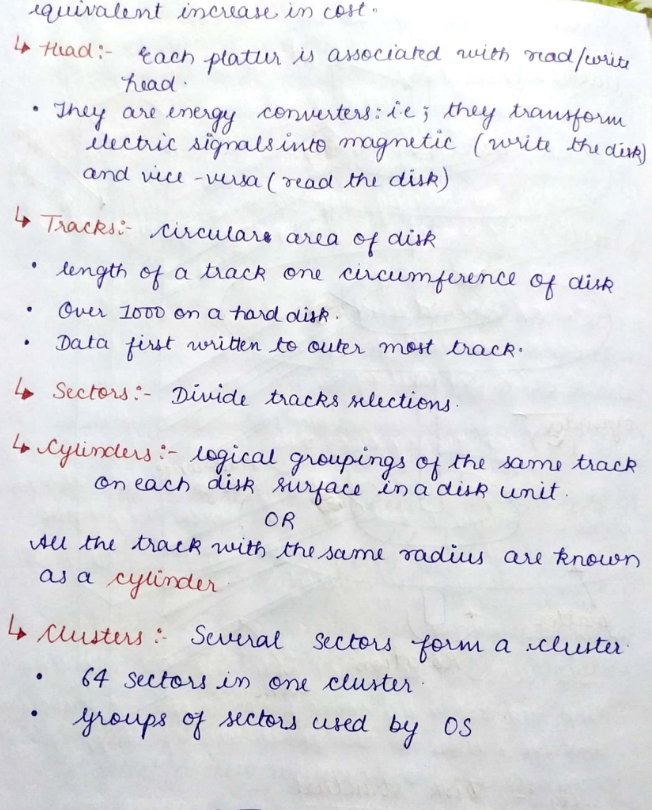 equivalent increase in cost.
↳ Head:- Each platter is associated with read/write
head.
• They are energy converters: i.e; they transform
electric signals into magnetic (write the disk)
and vice-versa (read the disk)
↳ Tracks:- circular area of disk
• length of a track one circumference of disk
• Over 1000 on a hard disk.
• Data first written to outer most track.
↳ Sectors:- Divide tracks selections.
↳ Cylinders:- logical groupings of the same track
on each disk surface in a disk unit.
OR
All the track with the same radius are known
as a cylinder.
↳ Clusters:- Several sectors form a cluster.
• 64 sectors in one cluster.
• groups of sectors used by OS